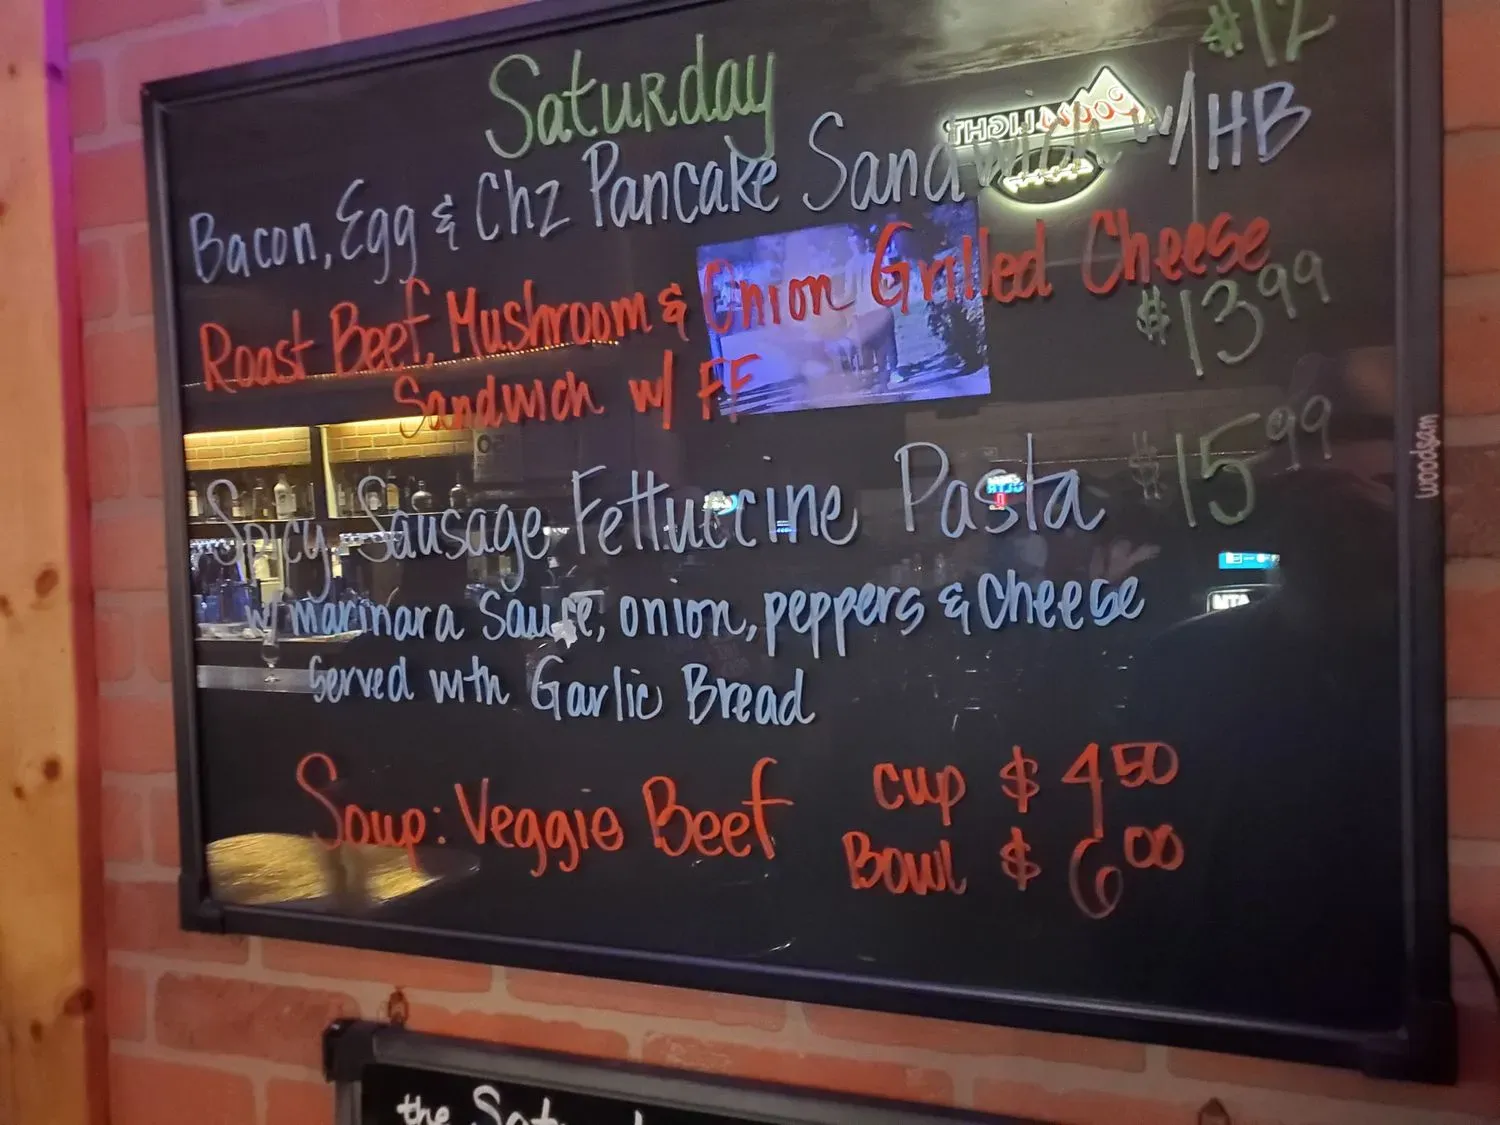 Saturday $12
Bacon, Egg & Chz Pancake Sandwich w/HB
Roast Beef, Mushroom & Onion Grilled Cheese
Sandwich w/ FF $13.99
Spicy Sausage Fettuccine Pasta $15.99
w/ marinara sauce, onion, peppers & Cheese
Served with Garlic Bread
Soup: Veggie Beef cup $4.50
Bowl $6.00
COORS LIGHT
woodsam
the